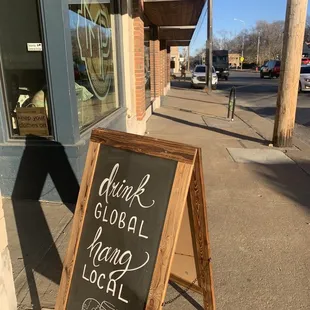 drink
GLOBAL
hang
LOCAL